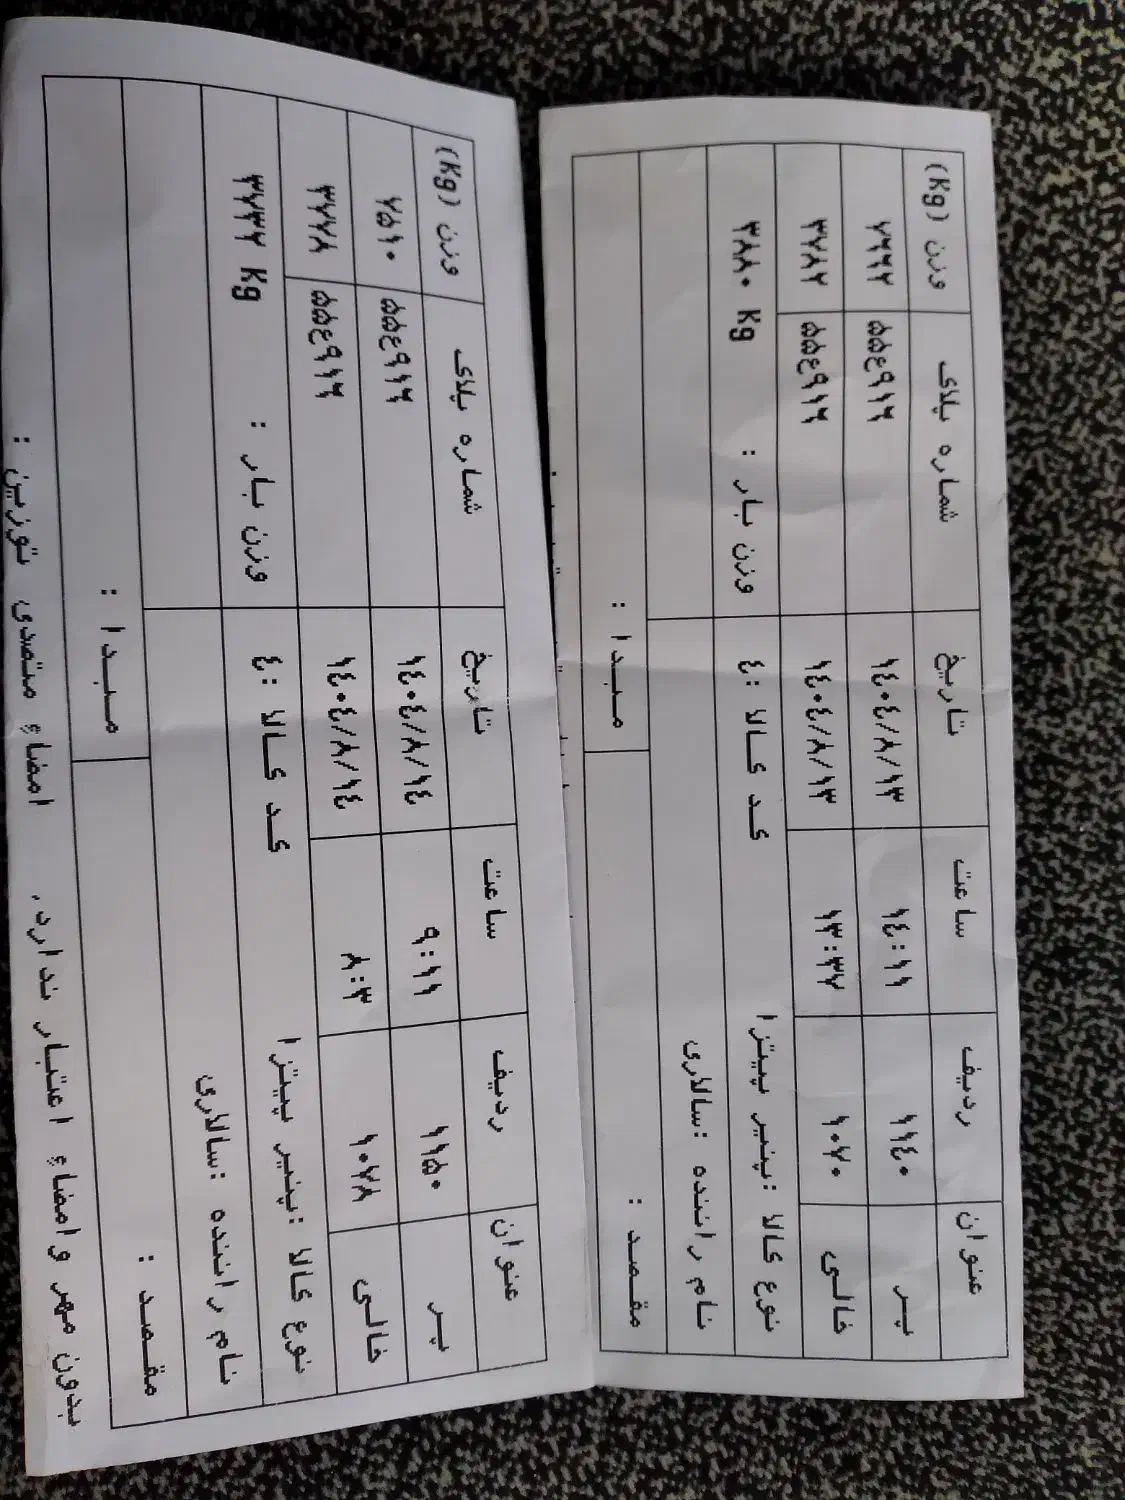 عنوان ردیف ساعت تاریخ شماره پلاک وزن (Kg)
پر ۱۱٤۰ ۱٤:۱۱ ۱٤۰٤/۸/۱۳ ۵۵ع۹۱۶ ۷۶۶۲
خالی ۱۰۷۰ ۱۳:۳۷ ۱٤۰٤/۸/۱۳ ۵۵ع۹۱۶ ۳۷۸۲
نوع کالا :پنیر پیتزا کد کالا :٤ وزن بار : ۳۸۸۰ Kg
نام راننده :سالاری
مقصد : مبدا :
عنوان ردیف ساعت تاریخ شماره پلاک وزن (Kg)
پر ۱۱۵۰ ۹:۱۱ ۱٤۰٤/۸/۱٤ ۵۵ع۹۱۶ ۷۵۱۰
خالی ۱۰۷۸ ۸:۳ ۱٤۰٤/۸/۱٤ ۵۵ع۹۱۶ ۳۷۷۸
نوع کالا :پنیر پیتزا کد کالا :٤ وزن بار : ۳۷۳۲ Kg
نام راننده :سالاری
مقصد : مبدا :
بدون مهر و امضاء اعتبار ندارد. امضاء متصدی توزین :